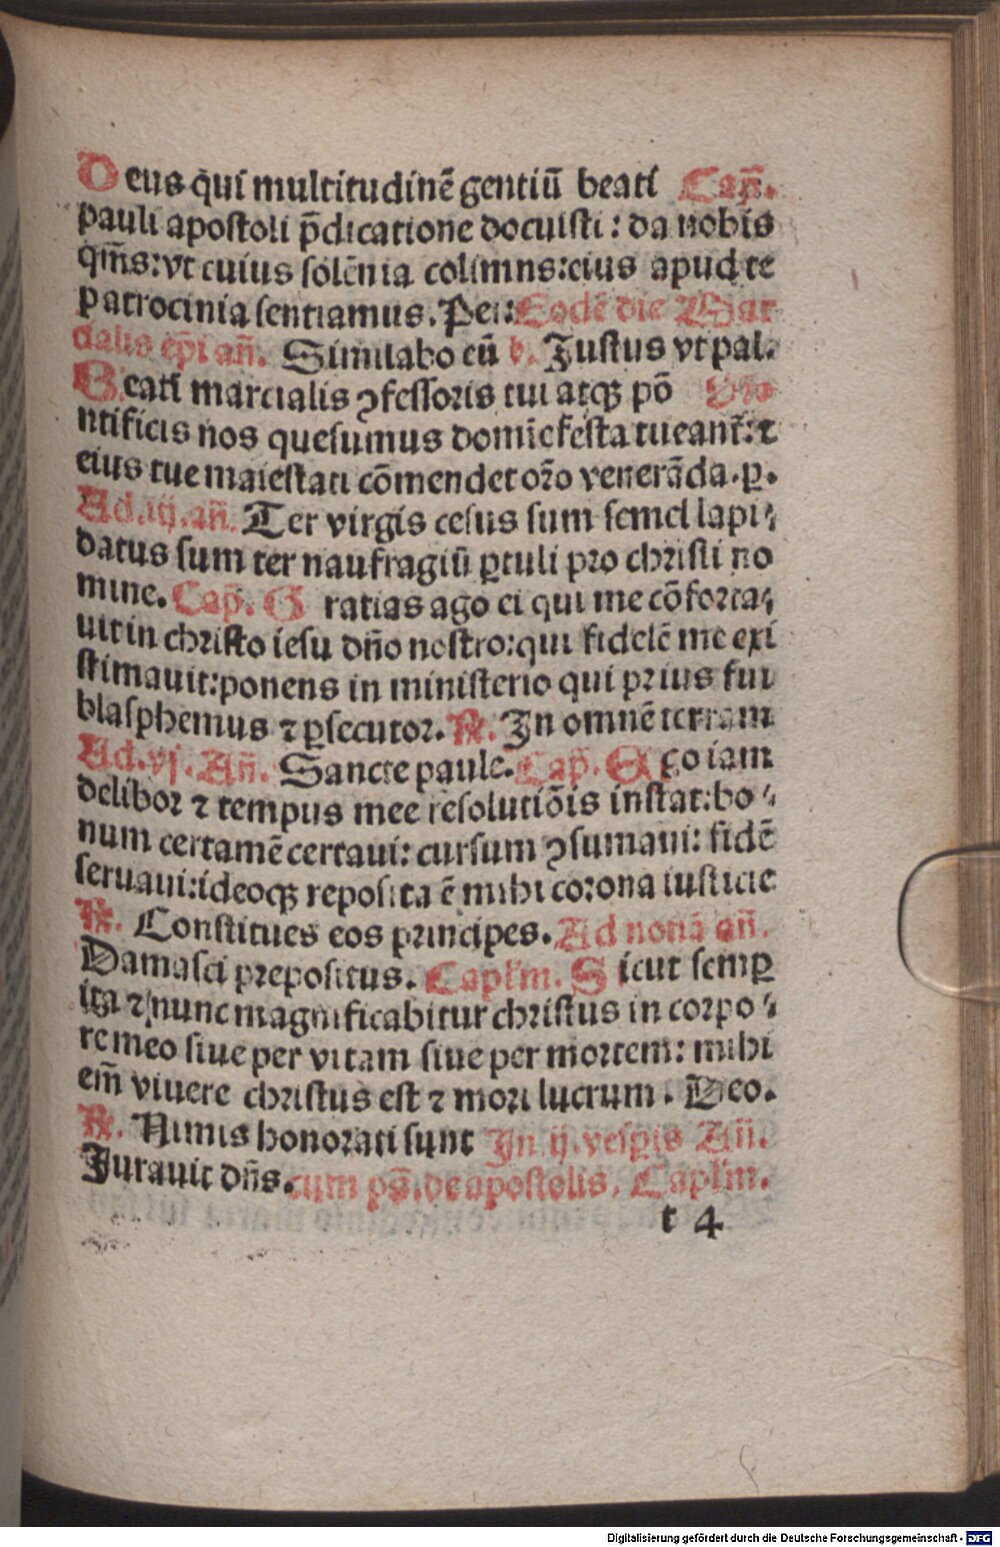 Deus qui multitudinē gentiū beati Cap̄.
pauli apostoli p̄dicatione docuisti: da nobis
qm̄s: vt cuius solēnia colimns: eius apud te
patrocinia sentiamus. Per: Eodē die Mar
cialis ep̄i an̄. Similabo eū v. Justus vt pal.
Beati marcialis ꝯfessoris tui atqꝫ pō Oro
ntificis nos quesumus domīe festa tueant᷑: ⁊
eius tue maiestati cōmendet oro᷑ venerāda. p.
Ad. iij. an̄. Ter virgis cesus sum semel lapi⸗
datus sum ter naufragiū ꝑtuli pro christi no
mine. Cap̄. Gratias ago ei qui me cōforta⸗
uit in christo iesu dn̄o nostro: qui fidelē me exi
stimauit: ponens in ministerio qui prius fui
blasphemus ⁊ ꝑsecutor. ℟. In omnē terram
Ad. vj. An̄. Sancte paule. Cap̄. Ego iam
delibor ⁊ tempus mee resolutiōis instat: bo⸗
num certamē certaui: cursum ꝯsumaui: fidē
seruaui: ideoqꝫ reposita ē mihi corona iusticie
℟. Constitues eos principes. Ad nonā an̄.
Damasci prepositus. Caplm̄. Sicut semꝑ
ita ⁊ nunc magnificabitur christus in corpo⸗
re meo siue per vitam siue per mortem: mihi
em̄ viuere christus est ⁊ mori lucrum. Deo.
℟. Nimis honorati sunt In ij. vesꝑis An̄.
Jurauit dn̄s. cum ps̄. de apostolis. Caplm̄.
t 4
Digitalisierung gefördert durch die Deutsche Forschungsgemeinschaft - DFG